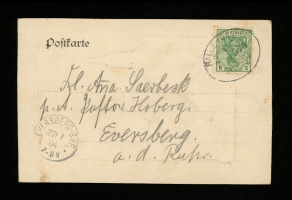 Postkarte
Frl. Ana Saerbeck
p. a. Pastor Hoberg.
Eversberg.
a. d. Ruhr.
EVERSBERG
7-8V